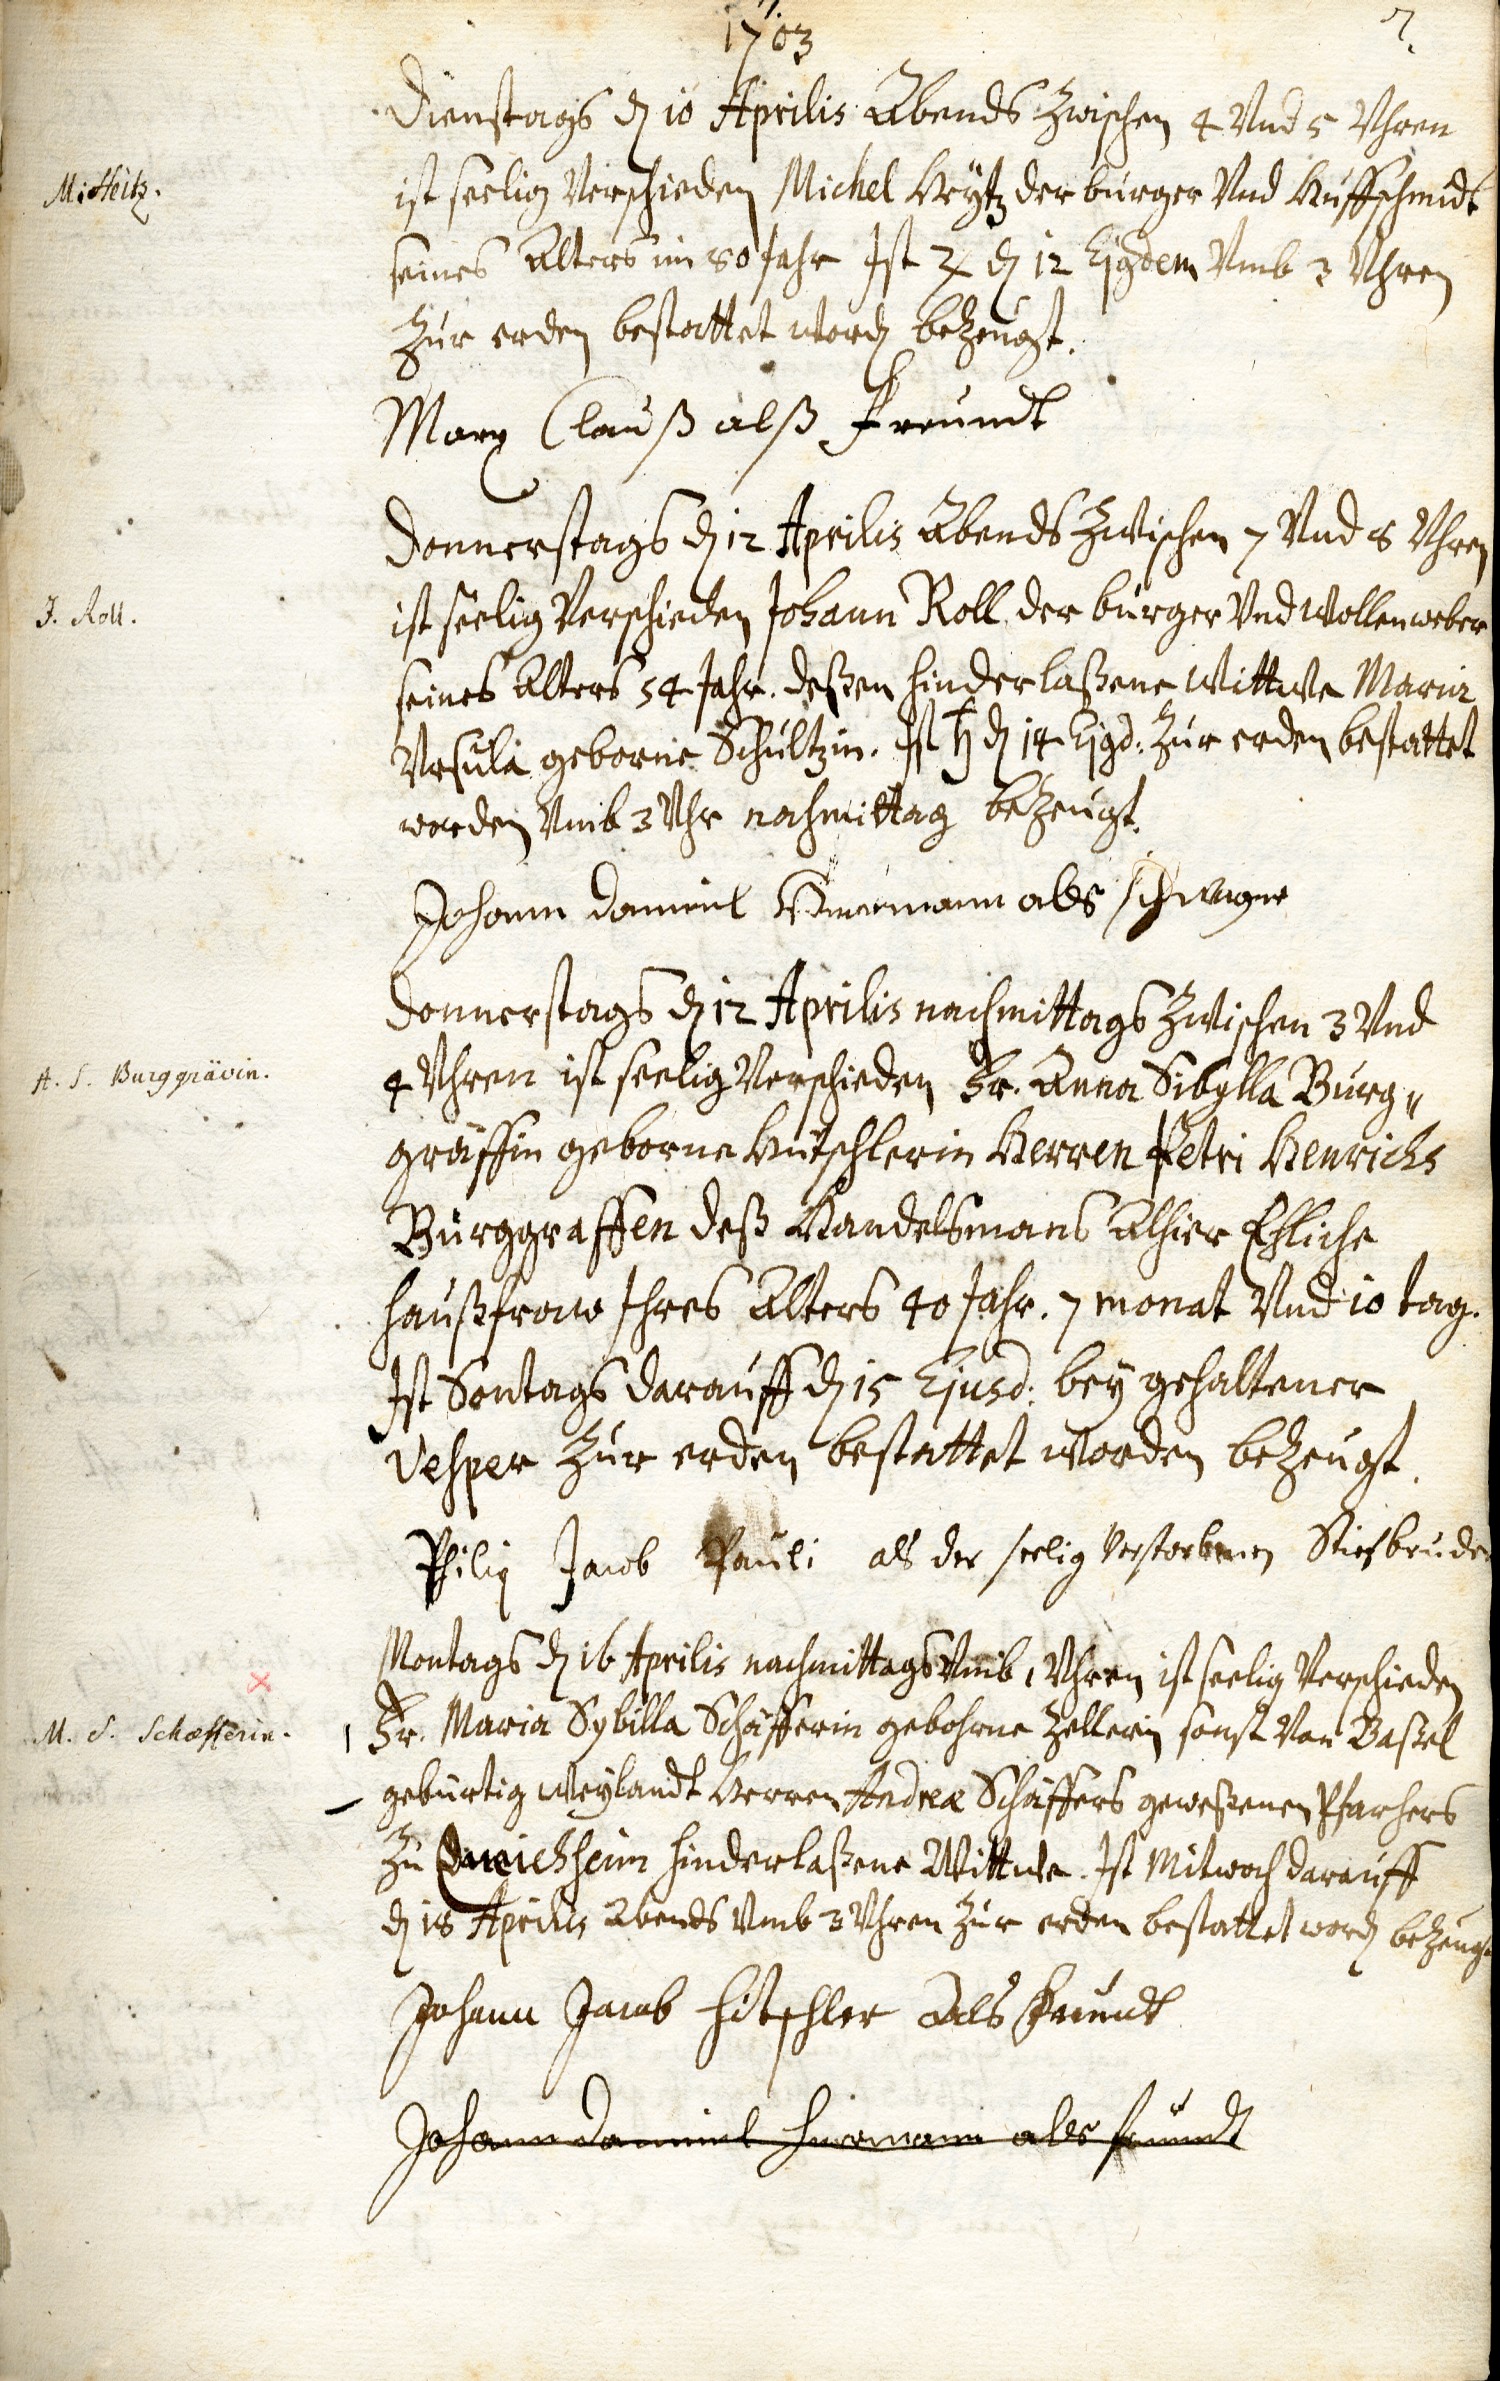 1703
7.
Dienstags dn 10 Aprilis Abends Zwischen 4 Vnd 5 Vhren
M. Heitz.
ist seelig Verschieden Michel Heÿtz der burger Vnd Huffschmidt
seines Alters im 80 Jahr Ist ♃ dn 12 Ejusdem Vmb 3 Vhren
Zur erden bestattet word bezeugt.
Marx Clauß alß freundt
Donnerstags dn 12 Aprilis Abends Zwischen 7 Vnd 8 Vhren
J. Roll.
ist seelig Verschieden Johann Roll der burger Vnd Wollenweber
seines Alters 54 Jahr. deßen hinderlaßene Wittwe Maria
Vrsula geborne Schultzin. Ist ♄ dn 14 Ejusd: Zur erden bestattet
worden Vmb 3 Vhr nachmittag bezeugt.
Johann Daniel als schwager
Donnerstags dn 12 Aprilis nachmittags Zwischen 3 Vnd
A. S. Burggrävin.
4 Vhren ist seelig Verschieden Fr. Anna Sibylla Burg„
gräffin geborne Hütschlerin Herren Petri Henrichs
Burggraffen deß Handelsmans Alhier Ehliche
haußfraw Ihres Alters 40 Jahr. 7 monat Vnd 10 tag.
Ist Sontags darauff dn 15 Ejusd: bey gehaltener
Vesper Zur erden bestattet worden bezeugt.
Philip Jacob Pauli als der seelig Verstorbenen Stiefbruder
Montags dn 16 Aprilis nachmittags Vmb 1 Vhren ist seelig Verschieden
M. S. Schæfferin.
Fr. Maria Sybilla Schäfferin gebohrne Zellerin sonst Von Baßel
gebürtig Weylandt Herren Andreæ Schäffers geweßenen Pfarhers
Zu hinderlaßene Wittwe. Ist Mitwoch darauff
dn 18 Aprilis Abends Vmb 3 Vhren Zur erden bestattet word bezeugt
Johann Jacob Hitschler Als freundt
Johann Daniel als freundt